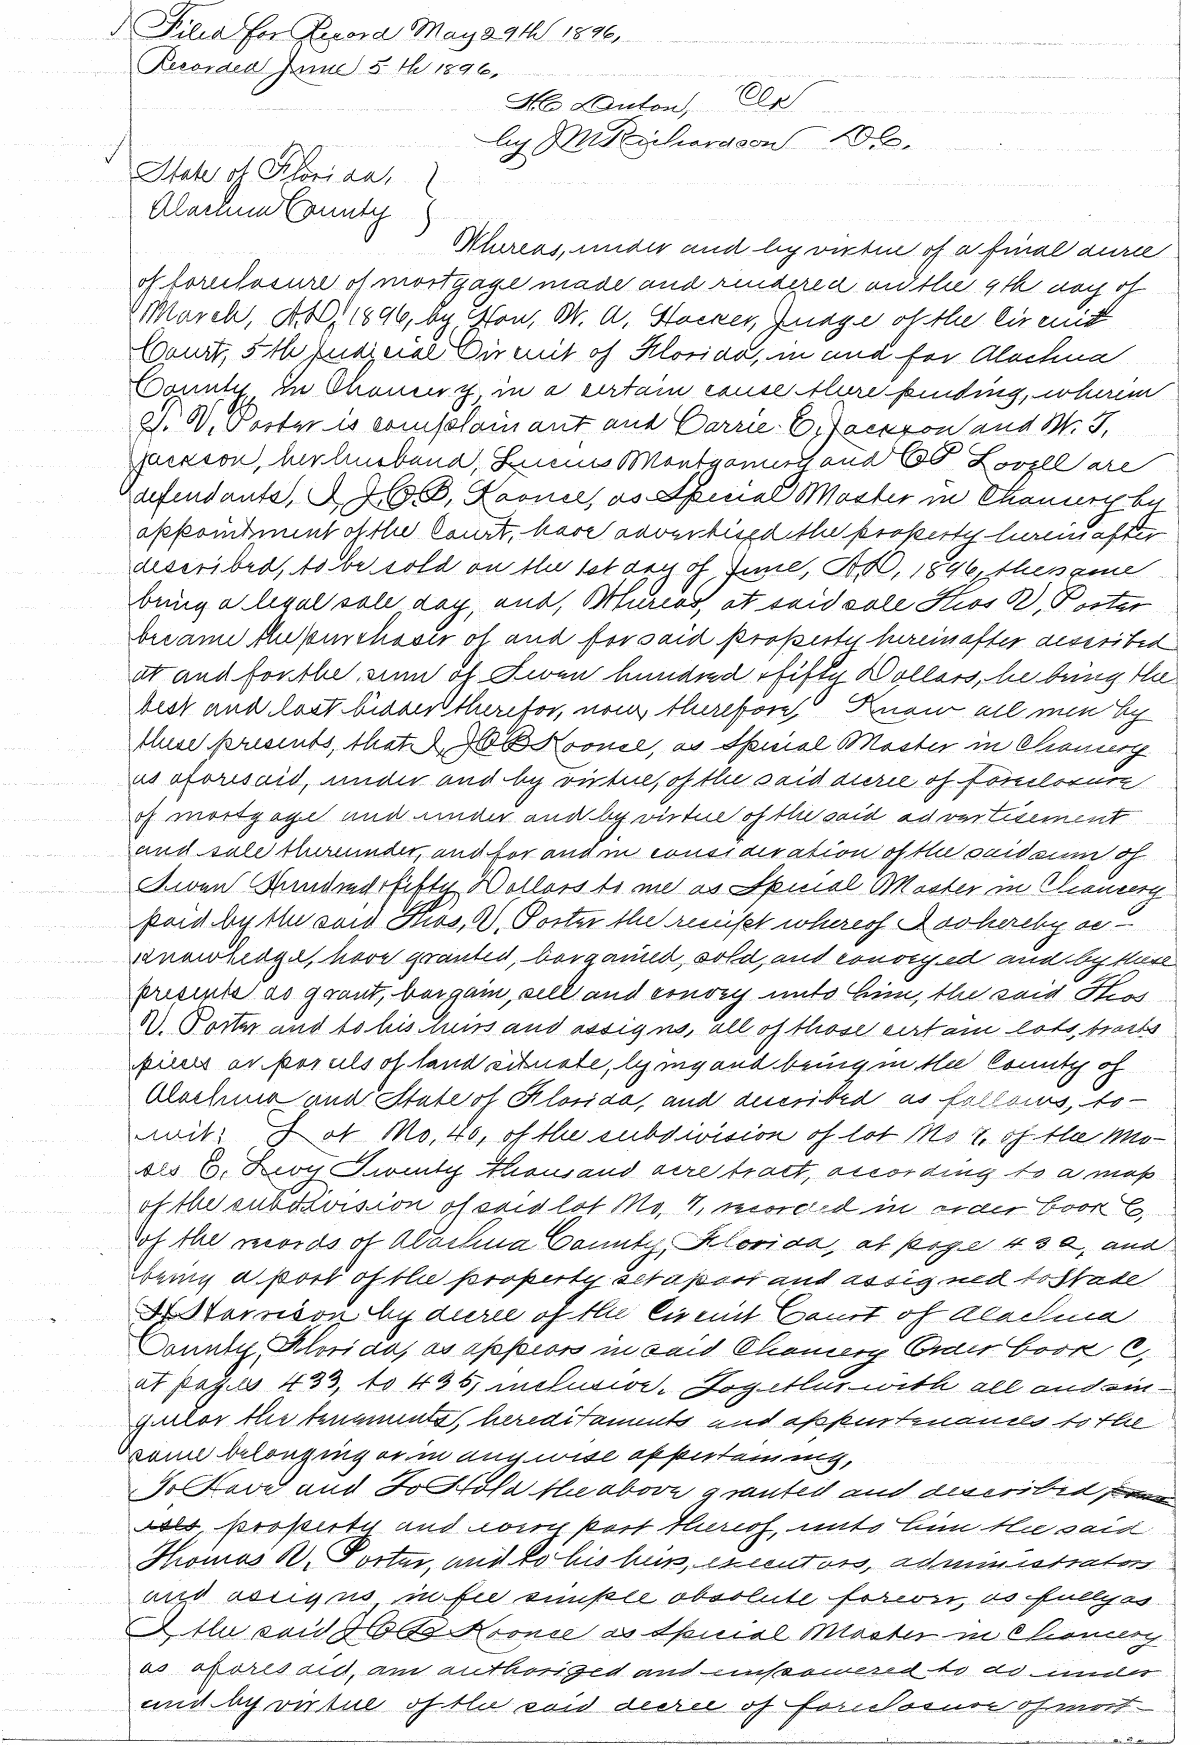 Filed for Record May 29th 1896,
Recorded June 5th 1896,
Clk
by J M Richardson D.C.
State of Florida,
Alachua County
Whereas, under and by virtue of a final decree
of foreclosure of mortgage made and rendered on the 9th day of
March, A.D. 1896, by Hon, W. A, Hocker, Judge of the Circuit
Court, 5th Judicial Circuit of Florida, in and for Alachua
County, in Chancery, in a certain cause there pending, wherein
T. V, Porter is complainant and Carrie E. Jackson and W. J,
Jackson, her husband, Lucius Montgomery and Lovell are
defendants, I, Koonce, as Special Master in Chancery by
appointment of the Court, have advertised the property hereinafter
described, to be sold on the 1st day of June, A.D, 1896, the same
being a legal sale day, and, Whereas, at said sale Thos V, Porter
became the purchaser of and for said property hereinafter described
at and for the sum of Seven hundred & fifty Dollars, he being the
best and last bidder therefor, now, therefore, Know all men by
these presents, that I, Koonce, as Special Master in Chancery
as aforesaid, under and by virtue, of the said decree of foreclosure
of mortgage and under and by virtue of the said advertisement
and sale thereunder, and for and in consideration of the said sum of
Seven Hundred & fifty Dollars to me as Special Master in Chancery
paid by the said Thos, V, Porter the receipt whereof I do hereby ac-
knowledge, have granted, bargained, sold, and conveyed and by these
presents do grant, bargain, sell and convey unto him, the said Thos
V. Porter and to his heirs and assigns, all of those certain lots, tracts
pieces or parcels of land situate, lying and being in the County of
Alachua and State of Florida, and described as follows, to-
wit: Lot No, 40, of the subdivision of lot No 7, of the Mo-
ses E. Levy Twenty thousand acre tract, according to a map
of the subdivision of said lot No, 7, recorded in order book C,
of the records of Alachua County, Florida, at page 432, and
being a part of the property set apart and assigned to
Harrison by decree of the Circuit Court of Alachua
County, Florida, as appears in said Chancery Order book C,
at pages 433, to 435, inclusive. Together with all and sin-
gular the tenements, hereditaments and appurtenances to the
same belonging or in any wise appertaining,
To Have and To Hold the above granted and described,
property and every part thereof, unto him the said
Thomas V. Porter, and to his heirs, executors, administrators
and assigns, in fee simple absolute forever, as fully as
I the said Koonce as Special Master in Chancery
as aforesaid, am authorized and empowered to do under
and by virtue of the said decree of foreclosure of mort-